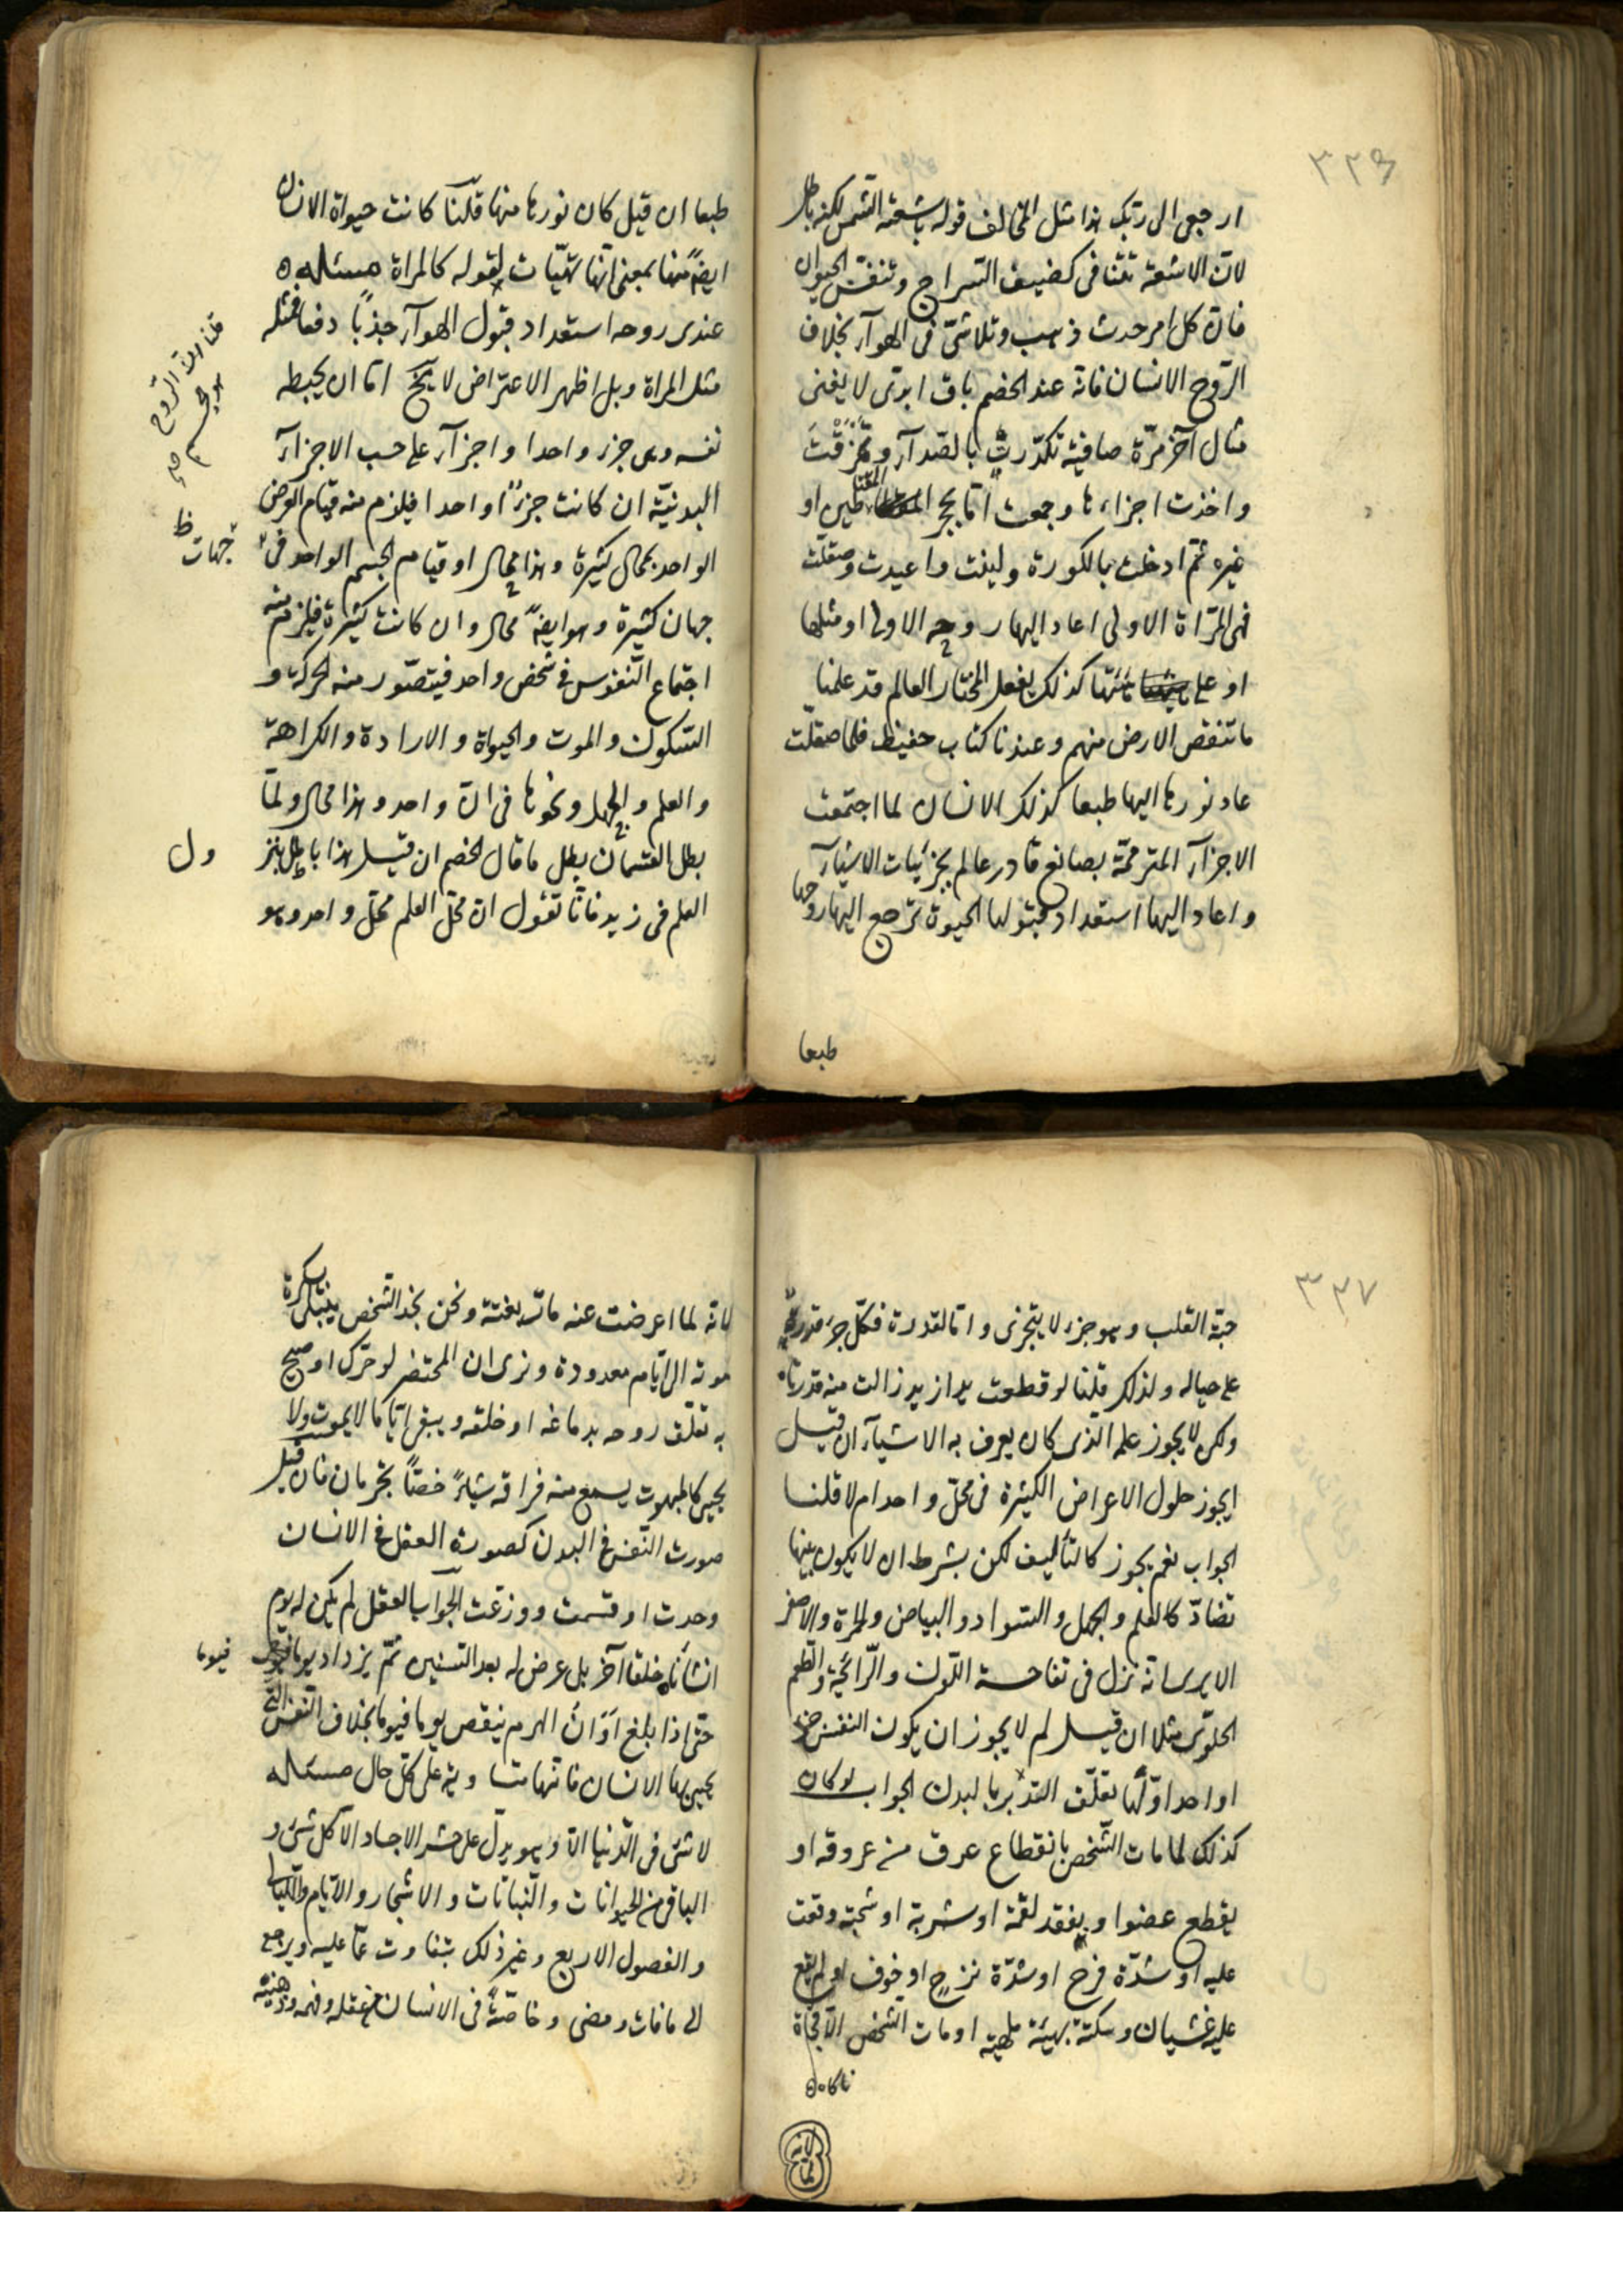 ٣٣٦
ارجعى الى ربك هذا مثل المخالف قوله باشعة الشمس لكنه باطل
لان الاشعة تتنافى كضيف السراج وتنفس الحيوان
فان كل امر حدث ذهب وتلاشى فى الهوآء بخلاف
الروح الانسان فانه عند الخصم باق ابدى لا يفنى
مثال آخر مرّة صافية تكدّرت بالصدآء وتمزقت
واخذت اجزاءها وجمعت اما بحجر طين او
غيره ثم ادخلت بالكورة ولينت واعيدت وصقلت
فهى المرّاة الاولى اعاد اليها روحه الاولى او مثلها
او على كذلك يفعل المختار العالم قد علمنا
ما تنقص الارض منهم وعندنا كتاب حفيظ فلما صقلت
عاد نورها اليها طبعا كذلك الانسان لما اجتمعت
الاجزآء بصانع قادر عالم بجزئيات الاشيآء
واعاد اليها استعداد قبولها الحيوة ترجع اليها روحها
طبعا
طبعا ان قيل كان نورها منها قلنا كانت حيواة الانسان
ايضا منها بمعنى انها لقوله كالمراة مسئله
عندى روحه استعداد قبول الهوآء جذبا دفعا فمثله
مثل المراة وبل اظهر الاعتراض لا يخ اما ان يحيطه
نفسه وهى جزء واحدا واجزآء على حسب الاجزآء
البدنيّة ان كانت جزءًا واحدا فيلزم منه قيام العرض
الواحد بمحال كثيرة وهذا محال او قيام الجسم الواحد فى
جهان كثيرة وهو ايضا محال وان كانت كثيرة فيلزم منه
اجتماع النفوس فى شخص واحد فيتصور منه الحركة و
السكون والموت والحيواة والارادة والكراهة
والعلم والجهل ونحوها فى آن واحد وهذا محال ولما
بطل القسمان بطل ما قال الخصم ان قيل هذا باطل
العلم فى زيد فانا نقول ان محل العلم محل واحد وهو
قلنا ان الروح
هو جسم
جهات ظ
ول
٣٣٧
حبة القلب وهو جزء لا يتجزى واما القدرة فكل جزء قدرة
على حياله ولذلك قلنا لو قطعت يد از يد زالت منه قدرتها
ولكن لا يجوز علمه الذى كان يعرف به الاشيآء ان قيل
ايجوز حلول الاعراض الكثيرة فى محل واحد ام لا قلنا
الجواب نعم يجوز كالتأليف لكن بشرط ان لا يكون بينها
تضادّ كالعلم والجهل والسواد والبياض والحمرة والاصفر
الا يرى انه نزل فى تفاحة اللون والرائحة والطعم
الحلوى مثلا ان قيل لم لا يجوز ان يكون النفس جزء
او احدا وانها تعلق التدبر بالبدن الجواب لو كان
كذلك لما مات الشخص بانقطاع عرق من عروقه او
يقطع عضوا و يفقد لقمة او شربة او شجة وقعت
عليه او شدة فرح او شدة او خوف او لم يقع
عليه غشيان وسكتة بهيئة او مات الشخص الا فجاة
ناكاه
لانه لما
لانه لما اعرضت عنه مات بغتة ونحن نجد الشخص يبتلى سكرة
موته الى ايام معدودة ونرى ان المحتضر لو حرّك او صيح
به تعلق روحه بدماغه او خلقه ويبقى اياما لا يموت ولا
يحيى يسمع منه فراقه فان قيل
صورت النفس فى البدن كصورة العقل فى الانسان
وحدت او قسمت ووزعت الجواب العقل لم يكن له يوم
انشأناه خلقا آخر بل عرض له بعد السنين ثم يزداد يوما
فيوما
حتى اذا بلغ اوان الهرم ينقص يوما فيوما بخلاف النفس التى
يحيى بها الانسان فانها متساوية على كل حال مسئله
لا شئ فى الدنيا الا وهو يدل على حشر الاجساد الآكل شئ و
الباقى من الحيوانات والنباتات والاشجار والايام والليالى
والفصول الاربع وغير ذلك يتفاوت عما عليه ويرجع
الى ما فات ومضى وخاصة فى الانسان عقله وفهمه وذهنه